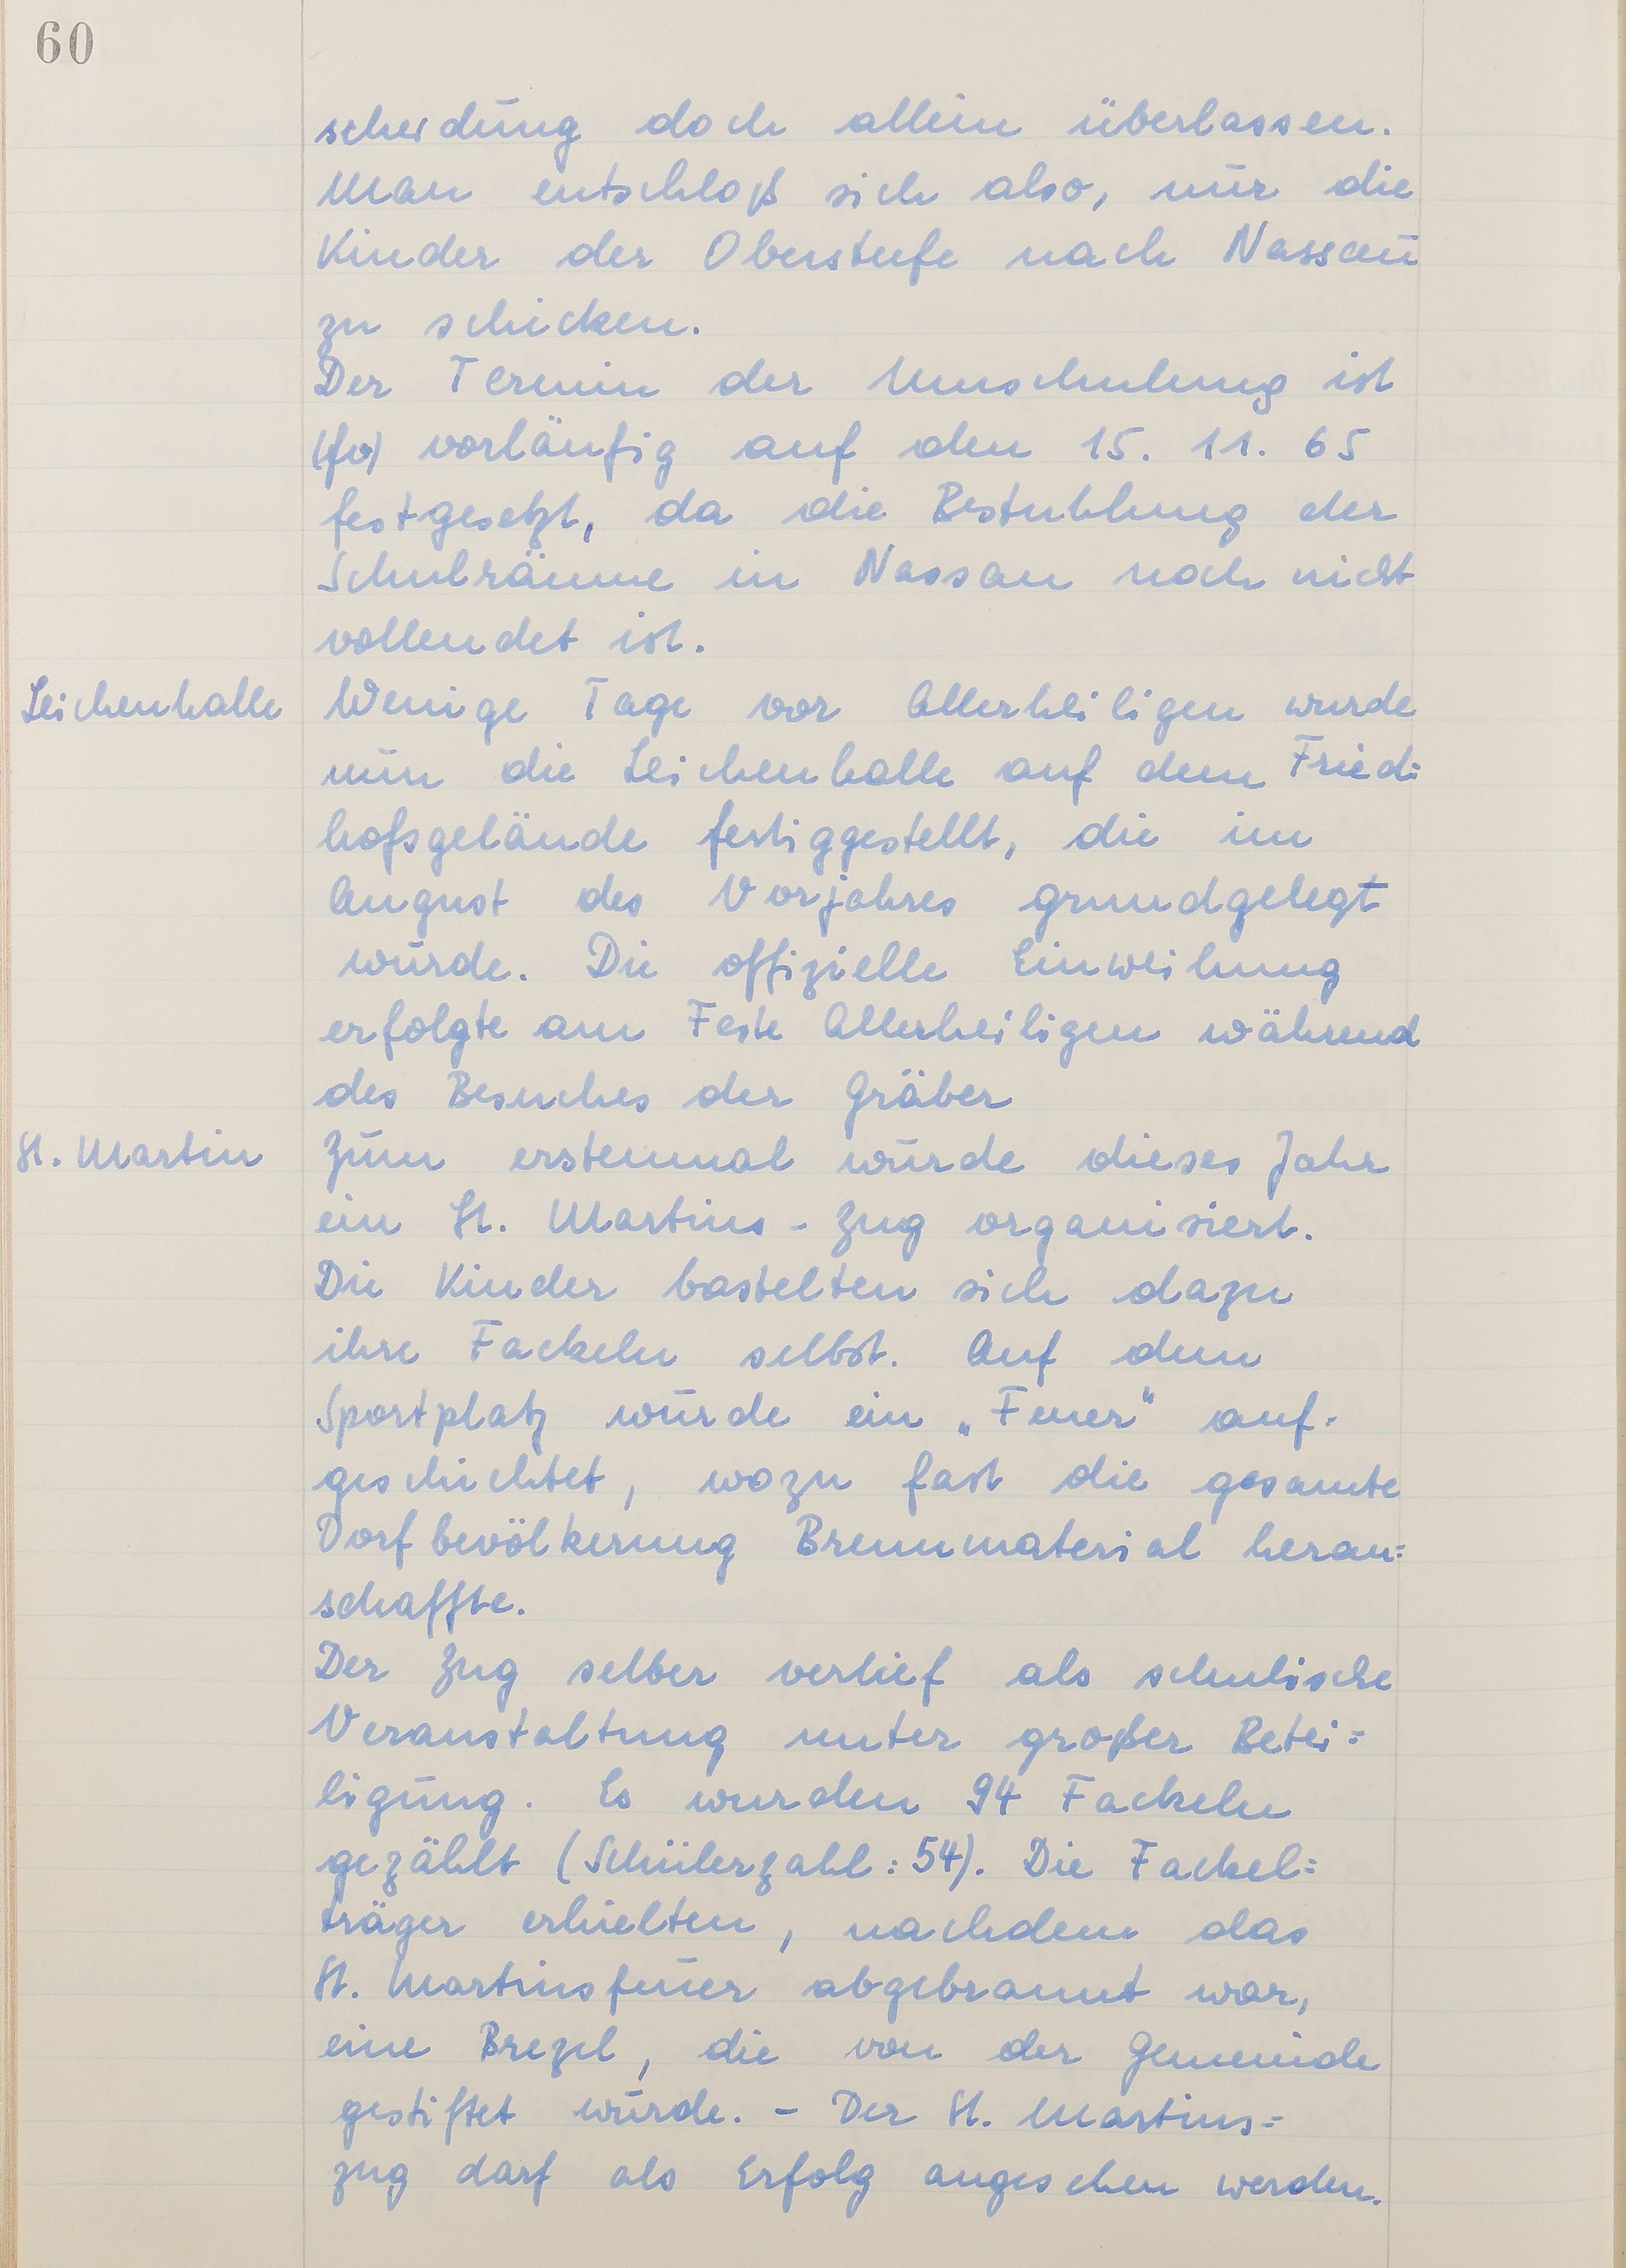 60
scheidung doch allein überlassen.
Man entschloß sich also, nur die
Kinder der Oberstufe nach Nassau
zu schicken.
Der Termin der Umschulung ist
(fo) vorläufig auf den 15. 11. 65
festgesetzt, da die Bestuhlung der
Schulräume in Nassau noch nicht
vollendet ist.
Leichenhalle Wenige Tage vor Allerheiligen wurde
nun die Leichenhalle auf dem Fried=
hofsgelände fertiggestellt, die im
August des Vorjahres grundgelegt
wurde. Die offizielle Einweihung
erfolgte am Feste Allerheiligen während
des Besuches der Gräber
St. Martin Zum erstenmal wurde dieses Jahr
ein St. Martins-Zug organisiert.
Die Kinder bastelten sich dazu
ihre Fackeln selbst. Auf dem
Sportplatz wurde ein „Feuer“ auf=
geschichtet, wozu fast die gesamte
Dorfbevölkerung Brennmaterial heran=
schaffte.
Der Zug selber verlief als schulische
Veranstaltung unter großer Betei=
ligung. Es wurden 94 Fackeln
gezählt (Schülerzahl: 54). Die Fackel=
träger erhielten, nachdem das
St. Martinsfeuer abgebrannt war,
eine Brezel, die von der Gemeinde
gestiftet wurde. - Der St. Martins=
zug darf als Erfolg angesehen werden.